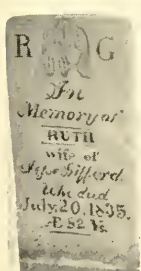 R G
In
Memory of
RUTH
wife of
Gifford.
who died
July, 20, 1835.
Æ 82 Ys.